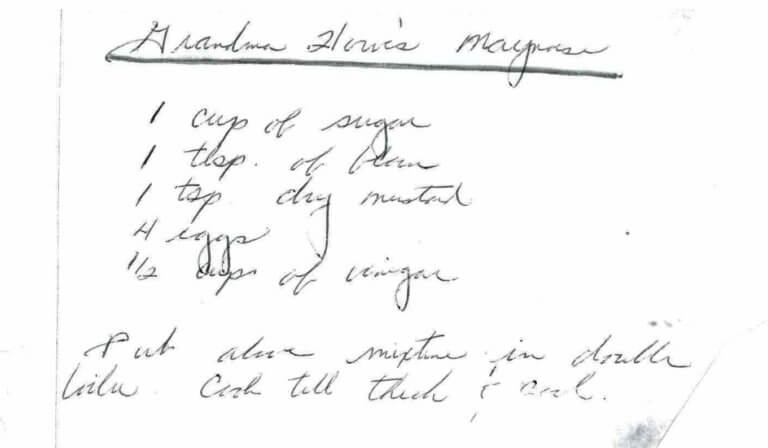 Grandma Florie's Maynase
1 cup of sugar
1 tbsp. of flour
1 tsp dry mustard
4 eggs
1/2 cups of vinigar
Put above mixture in double
boiler. Cook till thick & cool.